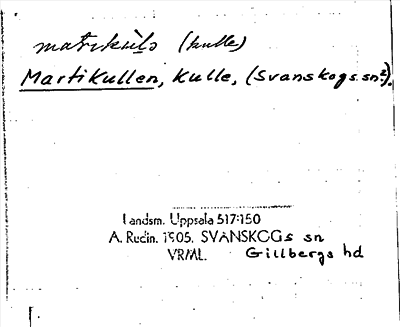 matrikùlo (kulle)
Martikullen, Kulle, (Svanskogs sn?).
Landsm. Uppsala 517:150
A. Rudin. 1905. SVANSKOGs sn
VRML. Gillbergs hd